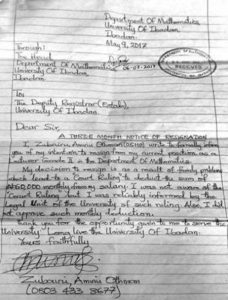 Department Of Mathematics
University Of Ibadan
Ibadan.
May 9, 2017
Through:
The Head
Department Of Mathematics
University Of Ibadan
Ibadan.
RECEIVED
06-07-2017
To
The Deputy Registrar (Estab),
University Of Ibadan.
Dear Sir,
A THREE MONTH NOTICE OF RESIGNATION
I, Zubairu, Aminu Othman write to formally inform
you of my intention to resign from my current position as a
Lecturer Grade II in the Department Of Mathematics.
My decision to resign is as a result of family problem
which lead to a Court Ruling to deduct the sum of
₦60,000 monthly from my salary. I was not aware of the
Court Ruling but I was rather informed by the
Legal Unit of the University of such ruling. Also I did
not approve such monthly deduction.
Thank you for the opportunity given to me to serve the
University. Long live the University Of Ibadan.
Yours faithfully
Zubairu, Aminu Othman
(0803 433 3677)